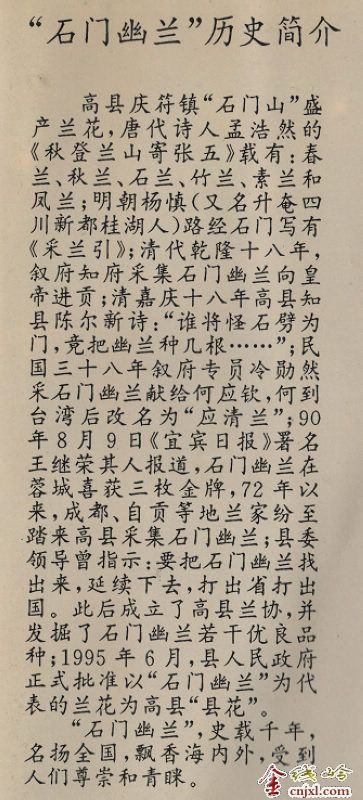 “石门幽兰”历史简介
高县庆符镇“石门山”盛
产兰花，唐代诗人孟浩然的
《秋登兰山寄张五》载有：春
兰、秋兰、石兰、竹兰、素兰和
凤兰；明朝杨慎（又名升奄四
川新都桂湖人）路经石门写有
《采兰引》；清代乾隆十八年，
叙府知府采集石门幽兰向皇
帝进贡；清嘉庆十八年高县知
县陈尔新诗：“谁将怪石劈为
门，竞把幽兰种几根……”；民
国三十八年叙府专员冷勋然
采石门幽兰献给何应钦，何到
台湾后改名为“应清兰”；90
年8月9日《宜宾日报》署名
王继荣其人报道，石门幽兰在
蓉城喜获三枚金牌，72年以
来，成都、自贡等地兰家纷至
踏来高县采集石门幽兰；县委
领导曾指示：要把石门幽兰找
出来，延续下去，打出省打出
国。此后成立了高县兰协，并
发掘了石门幽兰若干优良品
种；1995年6月，县人民政府
正式批准以“石门幽兰”为代
表的兰花为高县“县花”。
“石门幽兰”，史载千年，
名扬全国，飘香海内外，受到
人们尊崇和青眯。
金线岭
cnjxl.com